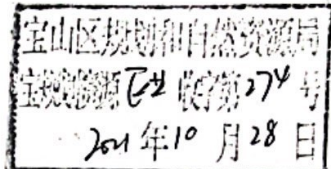 宝山区规划和自然资源局
宝规划资源 收字第274号
2021年10月28日